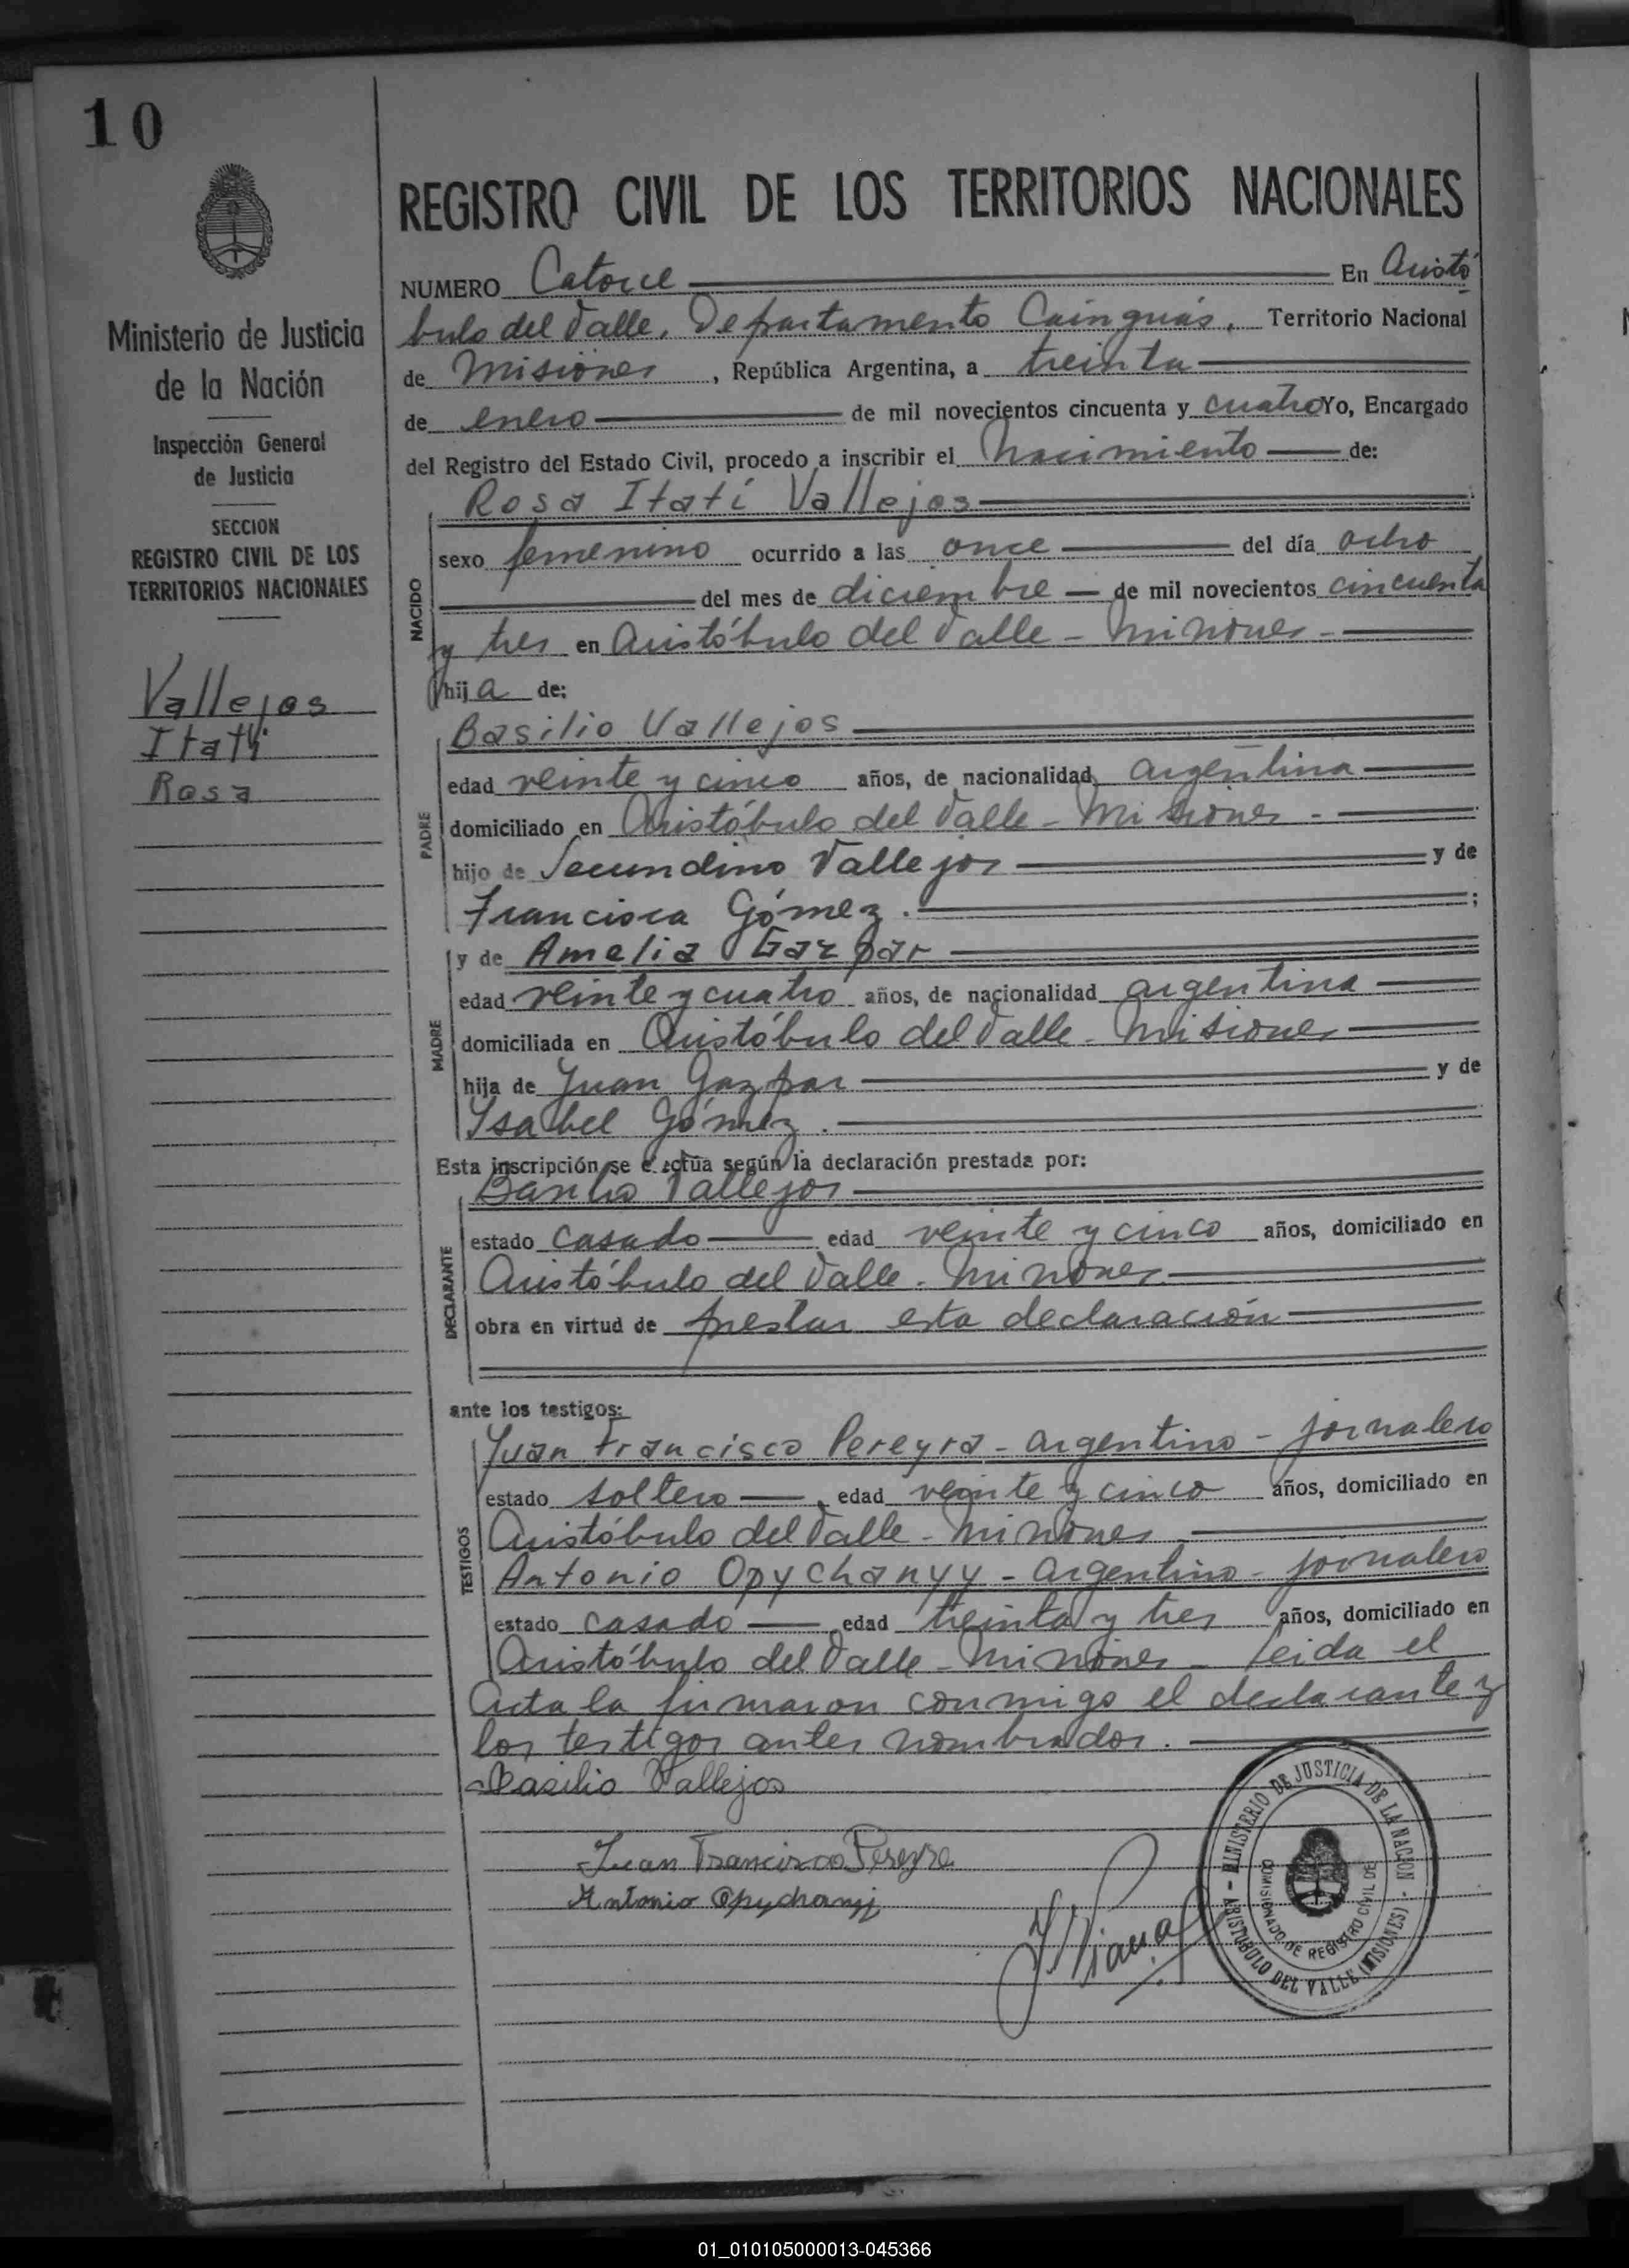 10
REGISTRO CIVIL DE LOS TERRITORIOS NACIONALES
Ministerio de Justicia
de la Nación
Inspección General
de Justicia
SECCION
REGISTRO CIVIL DE LOS
TERRITORIOS NACIONALES
Vallejos
Itatí
Rosa
NUMERO Catorce En Aristó
bulo del Valle, Departamento Cainguás, Territorio Nacional
de Misiones, República Argentina, a treinta
de enero de mil novecientos cincuenta y cuatro Yo, Encargado
del Registro del Estado Civil, procedo a inscribir el Nacimiento de:
Rosa Itatí Vallejos
NACIDO
sexo femenino ocurrido a las once del día ocho
del mes de diciembre de mil novecientos cincuenta
y tres en Aristóbulo del Valle - Misiones -
hija de:
Basilio Vallejos
PADRE
edad veinte y cinco años, de nacionalidad argentina
domiciliado en Aristóbulo del Valle - Misiones -
hijo de Secundino Vallejos y de
Francisca Gómez. ;
y de Amelia Gazpar
MADRE
edad veinte y cuatro años, de nacionalidad argentina
domiciliada en Aristóbulo del Valle - Misiones
hija de Juan Gazpar y de
Isabel Gómez.
Esta inscripción se efectúa según la declaración prestada por:
Basilio Vallejos
DECLARANTE
estado casado edad veinte y cinco años, domiciliado en
Aristóbulo del Valle - Misiones
obra en virtud de prestar esta declaración
ante los testigos:
Juan Francisco Pereyra - argentino - jornalero
TESTIGOS
estado soltero, edad veinte y cinco años, domiciliado en
Aristóbulo del Valle - Misiones
Antonio Opychanyy - argentino - jornalero
estado casado edad treinta y tres años, domiciliado en
Aristóbulo del Valle - Misiones - Leida el
Acta la firmaron conmigo el declarante y
los testigos antes nombrados.
Basilio Vallejos
Juan Francisco Pereyra
Antonio Opychanyj
MINISTERIO DE JUSTICIA DE LA NACION - ARISTOBULO DEL VALLE (MISIONES) -
COMISIONADO DE REGISTRO CIVIL DE
01_010105000013-045366